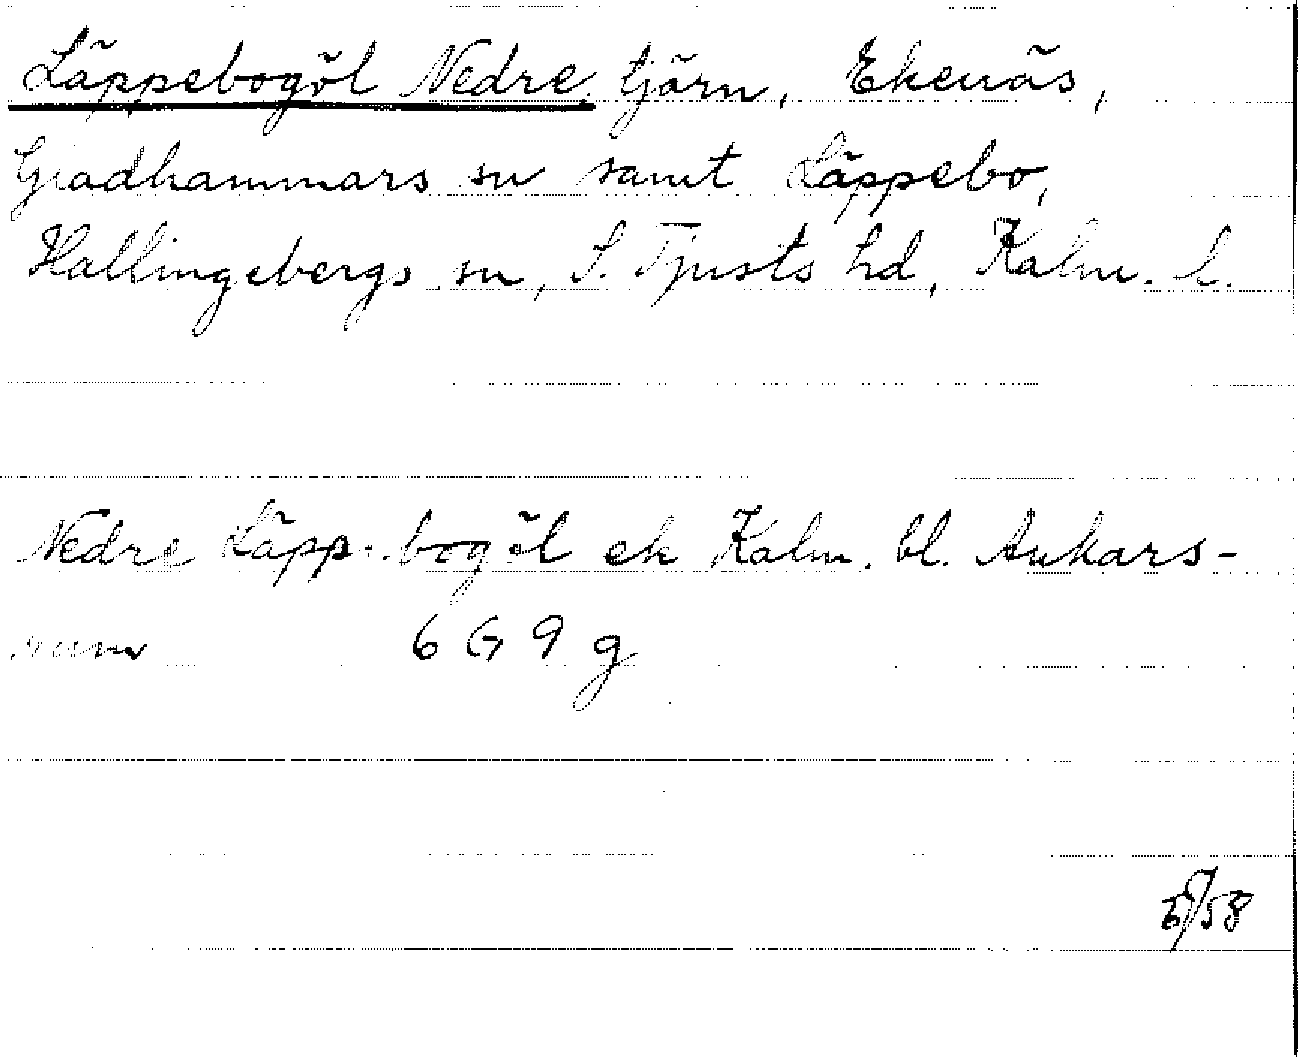 Läppebogöl Nedre, tjärn, Ekenäs,
Gladhammars sn samt Läppebo,
Hallingebergs sn, S. Tjusts hd, Kalm. l.
Nedre Läppebogöl ek Kalm. bl. Ankars-
rum 6 G 9 g
/58